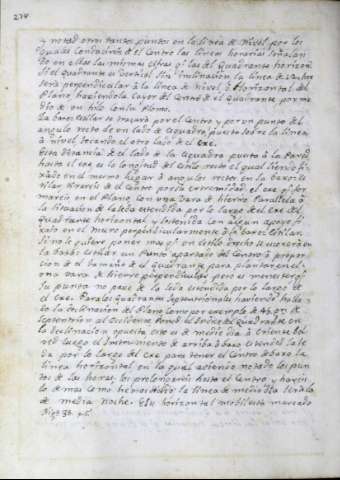 274
y notad otros tantos puntos en la linea de Nivel por los
quales conducireis de el Centro las lineas horarias señalan
do en ellas las mismas cifras q.e las del Quadrante horizon
el quadrante es Vertical sin inclinacion la linea de
sera perpendicular à la linea de Nivel ò Horizontal del
Plano haciendola caer del Centro de el Quadrante por me
dio de un hilo con su Plomo.
La barra se trazarà por el Centro y por un punto del
angulo recto de un lado de Esquadra puesto sobre la linea
à nivel tocando el otro lado de el exe.
Esta distancia de el lado de la Esquadra punto à la Pared
hasta el exe es la longitud del Estilo recto el qual siendo fi
xado en el mismo lugar à angulos rectos en la barra
tareis de el Centro por su extremidad el exe q.e for
mareis en el Plano con una Vara de hierro Parallela à
la situacion de la seda estendida por lo largo de el exe del
quadrante horizontal y sostenida con algun apoyo fi
xado en el muro perpendicularmente à la barra
Si no se quiere poner mas q.e un estilo drecho se marcarà en
la barra un Punto apartado del Centro à propor
cion de el tamaño de el quadrante para plantar en el
una vara de hierro perpendicular pero es menester q.e
su punta no pase de la seda estendida por lo largo de
el exe. Para los quadrantes Septentrionales haviendo halla
do la declinacion del Plano como por exemplo de 45 gr.s de
Septentrion al Occidente Poned el Indice del quadrante en
la declinacion opuesta esto es de medio dia à oriente bol
ved luego el Instrumento de arriba à baxo estended la se
da por lo largo del exe para tener el Centro debaxo la
linea horizontal en la qual aviendo notado los pun
tos de las horas, los prolongareis hasta el Centro y hareis
lo de mas como he dicho la linea de medio dia serà la
de media noche. Este horizontal mobil està marcado
Fig.a 38